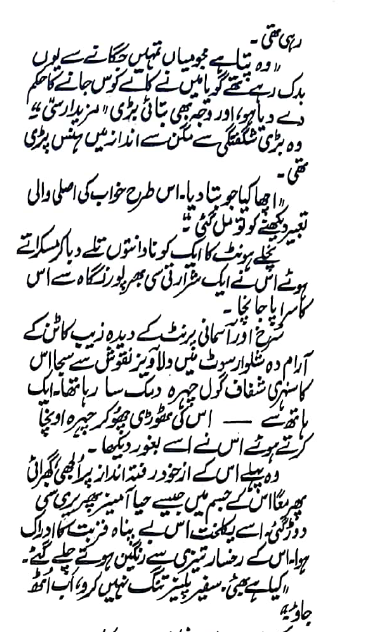 رہی تھی۔
"وہ پتا ہے نجومیاں تمہیں جگانے سے یوں
بدک رہے تھے گویا میں نے کالے کوس جانے کا حکم
دے دیا ہو، اور وجہ بھی بتائی بڑی "مزیدار سی"۔
وہ بڑی شگفتگی سے مگن سے انداز میں ہنس پڑی
تھی۔
"اچھا کیا جو بتا دیا۔ اس طرح خواب کی اصلی والی
تعبیر دیکھنے کو تو مل گئی"۔
نچلے ہونٹ کا ایک کونا دانتوں تلے دبا کر مسکراتے
ہوئے اس نے ایک شرارتی سی بھرپور نگاہ سے اس
کا سراپا جانچا۔
سرخ اور آسمانی پرنٹ کے دیدہ زیب کاٹن کے
آرام دہ شلوار سوٹ میں دلآویز نقوش سے سجا اس
کا سنہری شفاف گول چہرہ دمک سا رہا تھا۔ ایک
ہاتھ سے —— اس کی ٹھوڑی چھو کر چہرہ اونچا
کرتے ہوئے اس نے اسے بغور دیکھا۔
وہ پہلے اس کے ازخود رفتہ انداز پر الجھی گھبرائی
پھر معاً اس کے جسم میں جیسے حیا آمیز پھریری سی
دوڑ گئی۔ اسے یکلخت اس بے پناہ قربت کا ادراک
ہوا۔ اس کے رخسار تیزی سے رنگین ہوتے چلے گئے۔
"کیا ہے بھئی۔ سفیر پلیز تنگ نہیں کرو، اب اٹھ
جاؤ"۔